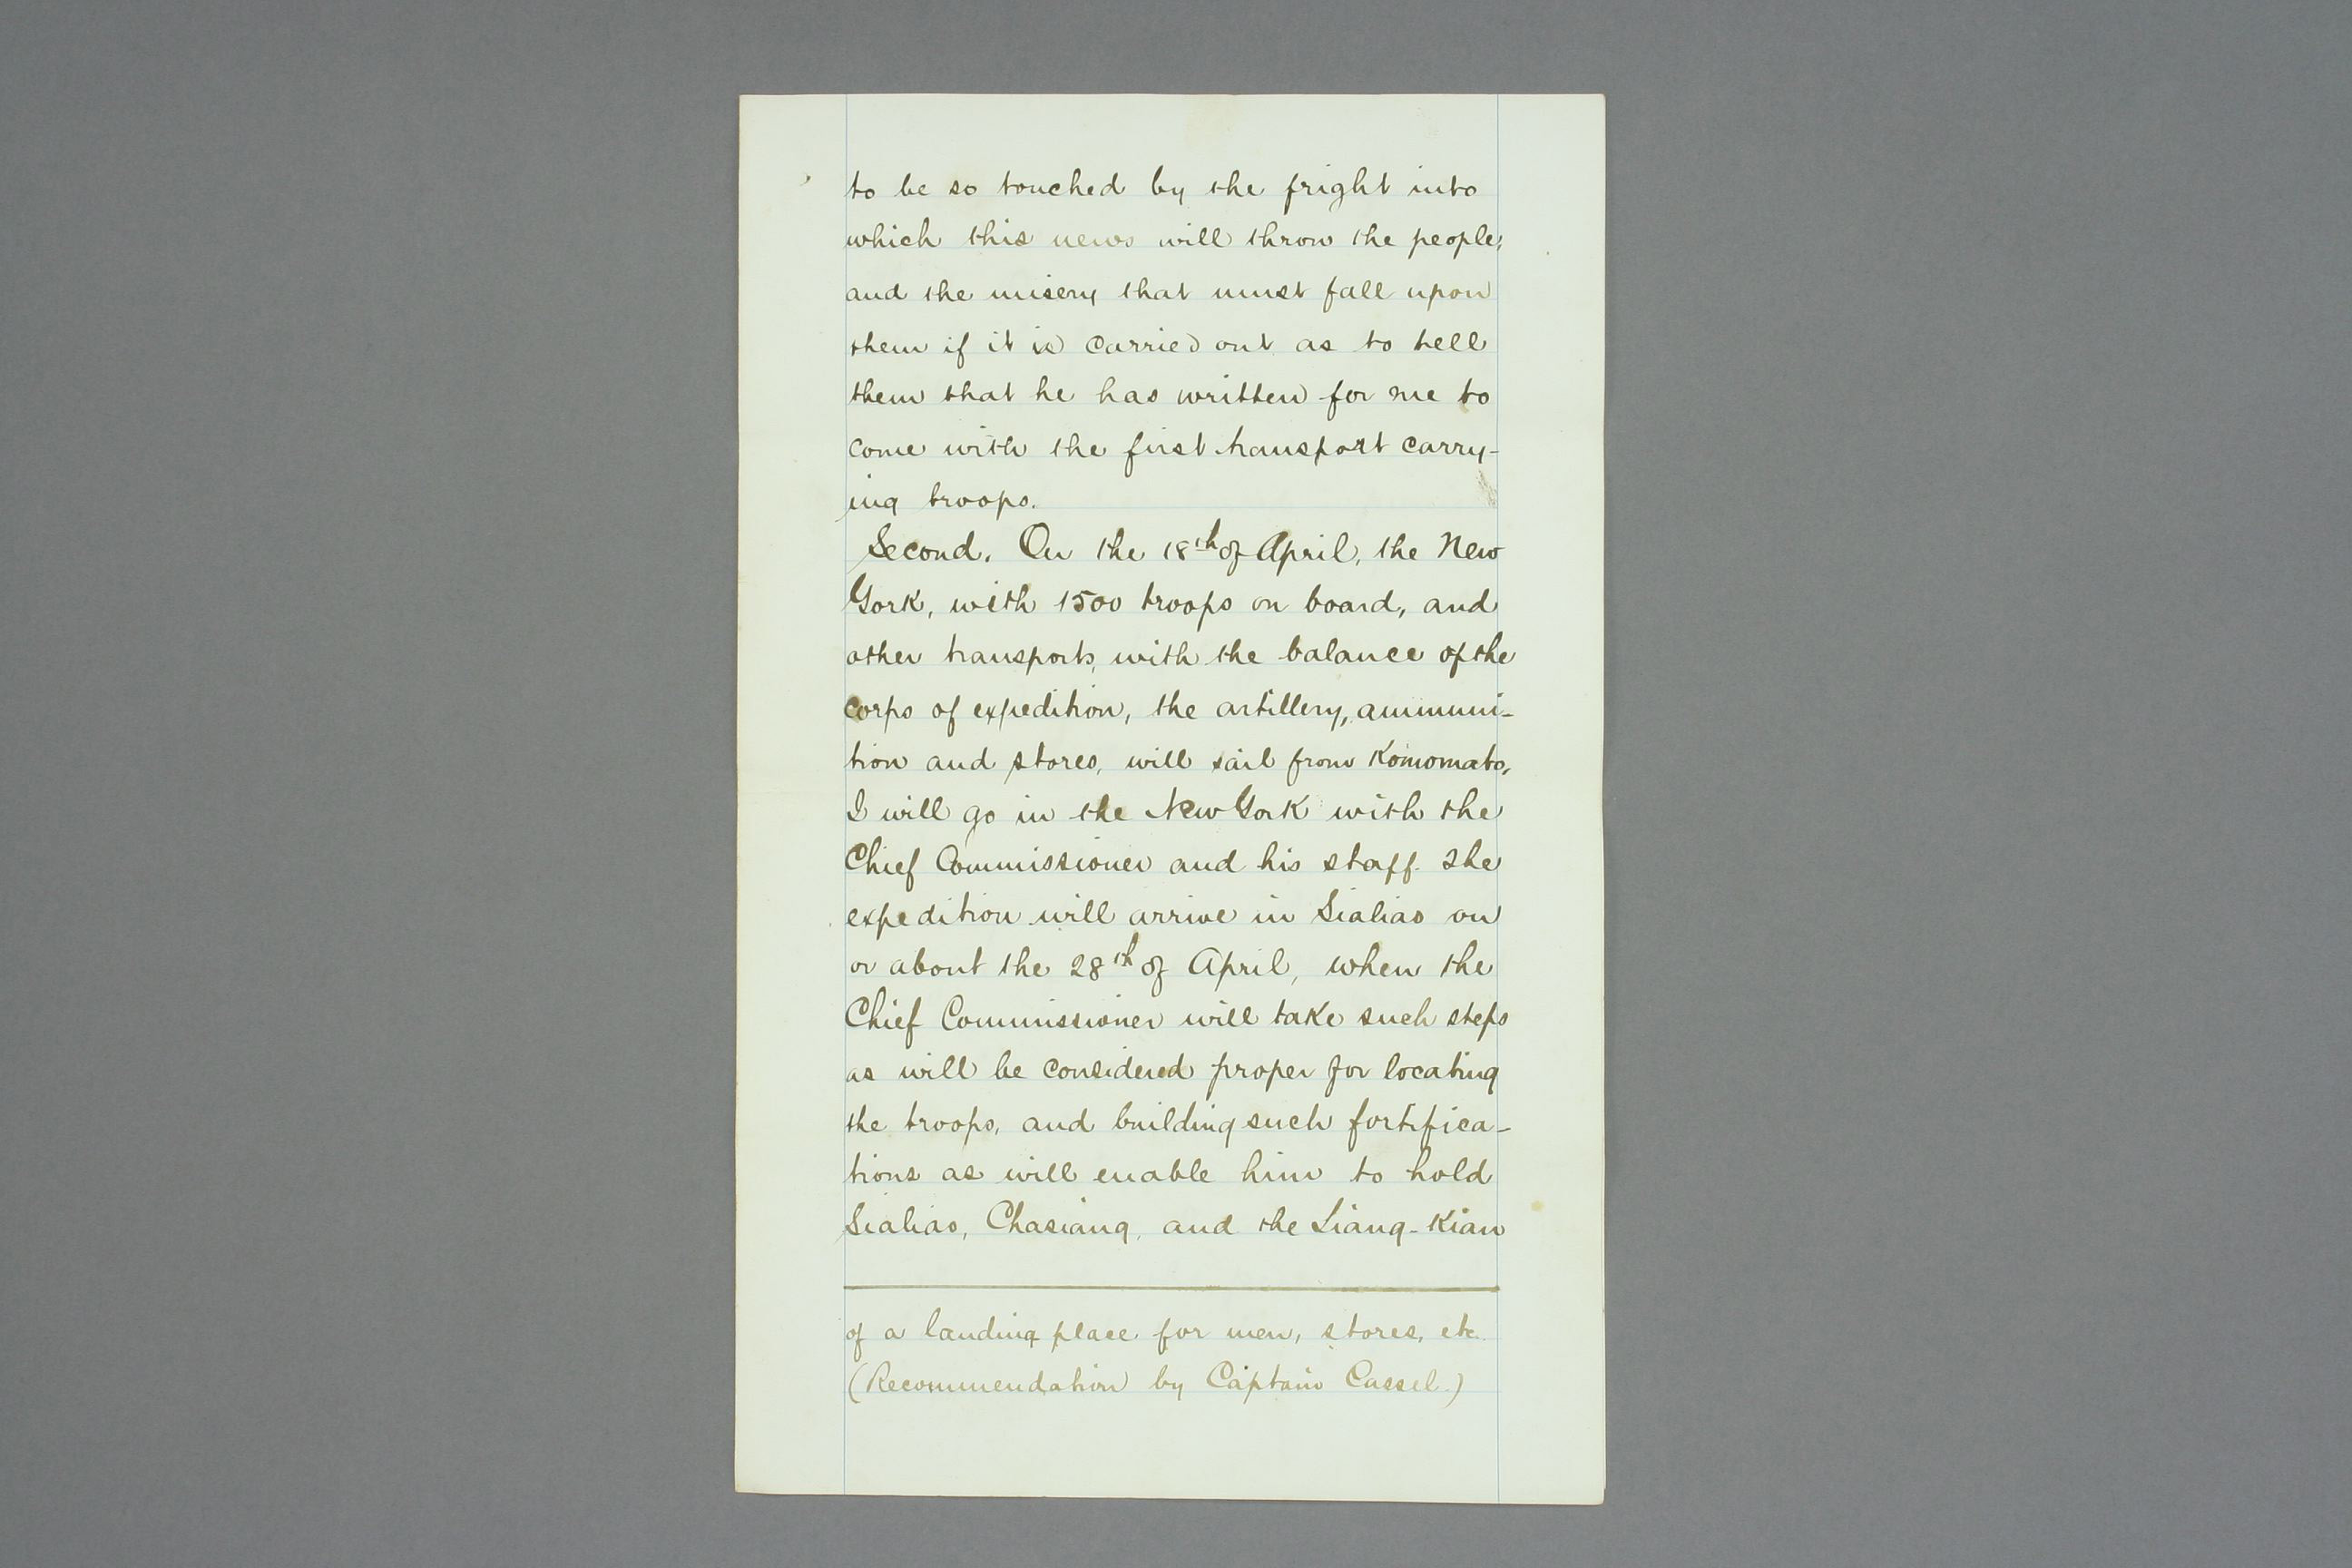 to be so touched by the fright into
which this news will throw the people,
and the misery that must fall upon
them if it is carried out as to tell
them that he has written for me to
come with the first transport carry-
ing troops.
Second. On the 18th of April, the New
York, with 1500 troops on board, and
other transports, with the balance of the
corps of expedition, the artillery, ammuni-
tion and stores, will sail from Komomato,
I will go in the New York with the
Chief Commissioner and his staff. The
expedition will arrive in Sialiao on
or about the 28th of April, when the
Chief Commissioner will take such steps
as will be considered proper for locating
the troops, and building such fortifica-
tions as will enable him to hold
Sialiao, Chasiang, and the Liang-Kian
of a landing place for men, stores, etc.
(Recommendation by Captain Cassel.)